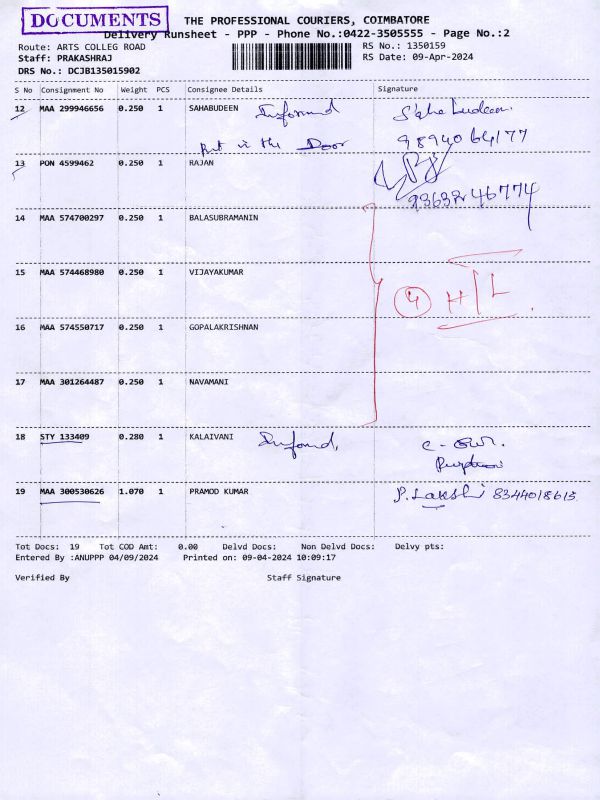 DOCUMENTS
THE PROFESSIONAL COURIERS, COIMBATORE
Delivery Runsheet - PPP - Phone No.:0422-3505555 - Page No.:2
Route: ARTS COLLEG ROAD
RS No.: 1350159
Staff: PRAKASHRAJ
RS Date: 09-Apr-2024
DRS No.: DCJB135015902
S No Consignment No Weight PCS Consignee Details Signature
12 MAA 299946656 0.250 1 SAHABUDEEN Informed
Put in the Door 9894064177
13 PON 4599462 0.250 1 RAJAN
14 MAA 574700297 0.250 1 BALASUBRAMANIN
15 MAA 574468980 0.250 1 VIJAYAKUMAR
4 H/L
16 MAA 574550717 0.250 1 GOPALAKRISHNAN
17 MAA 301264487 0.250 1 NAVAMANI
18 STY 133409 0.280 1 KALAIVANI
19 MAA 300530626 1.070 1 PRAMOD KUMAR P. Lakshi 8344018615
Tot Docs: 19 Tot COD Amt: 0.00 Delvd Docs: Non Delvd Docs: Delvy pts:
Entered By :ANUPPP 04/09/2024 Printed on: 09-04-2024 10:09:17
Verified By Staff Signature